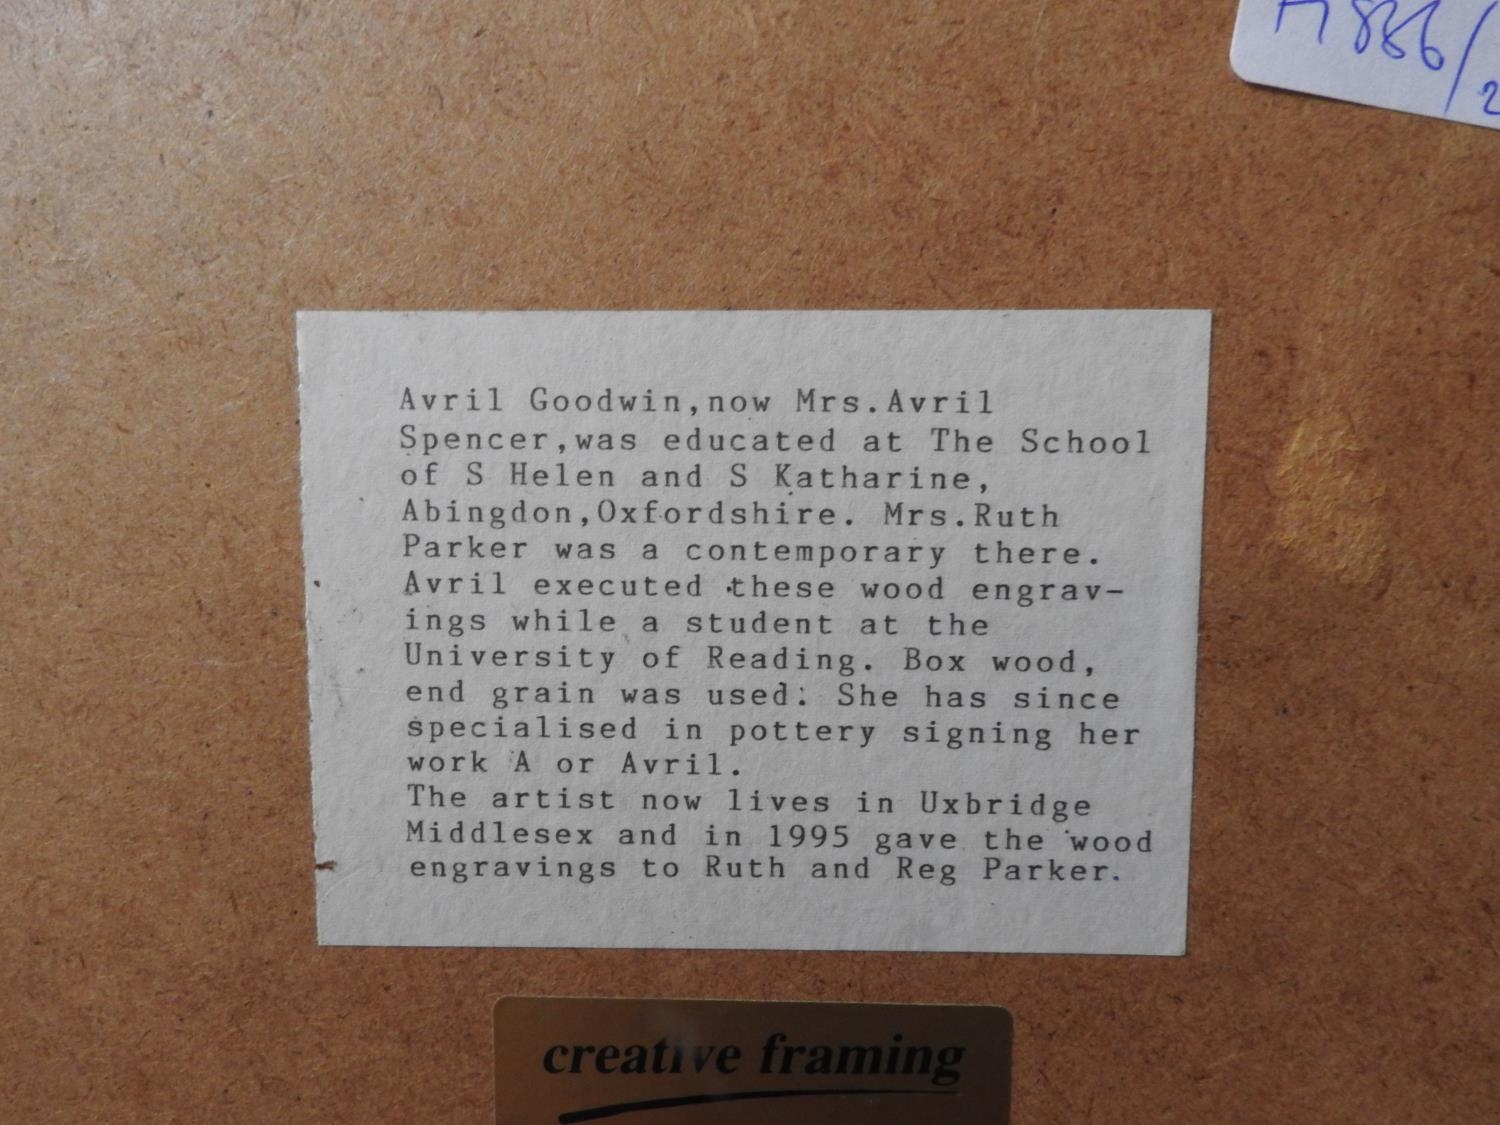 886/2
Avril Goodwin,now Mrs.Avril
Spencer,was educated at The School
of S Helen and S Katharine,
Abingdon,Oxfordshire. Mrs.Ruth
Parker was a contemporary there.
Avril executed these wood engrav-
ings while a student at the
University of Reading. Box wood,
end grain was used. She has since
specialised in pottery signing her
work A or Avril.
The artist now lives in Uxbridge
Middlesex and in 1995 gave the wood
engravings to Ruth and Reg Parker.
creative framing